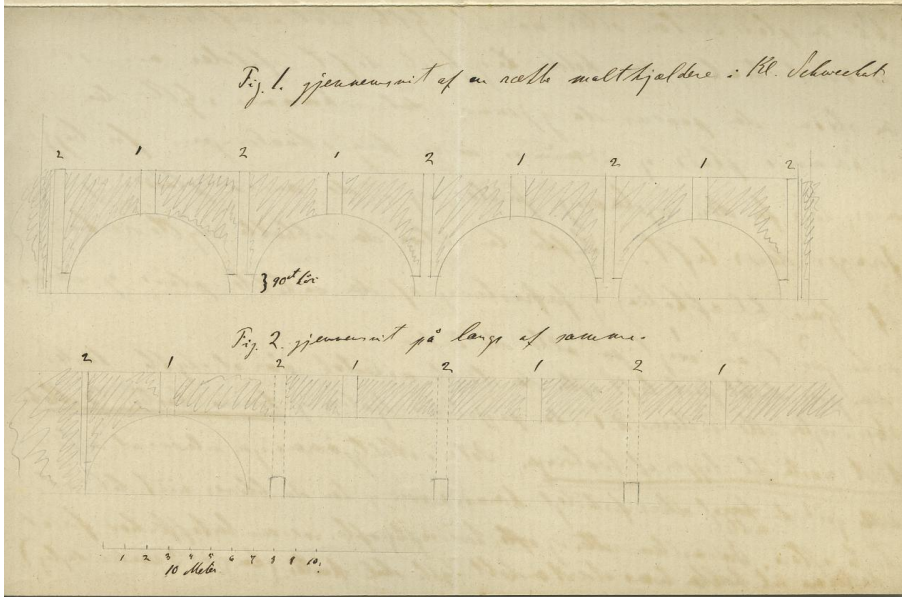 Fig. 1. gjennemsnit af en række maltkjældere i Kl. Schwechat.
2 1 2 1 2 1 2 1 2
90
Fig. 2. gjennemsnit på langs af samme.
2 1 2 1 2 1 2 1
1 2 3 4 5 6 7 8 9 10.
10 Meter